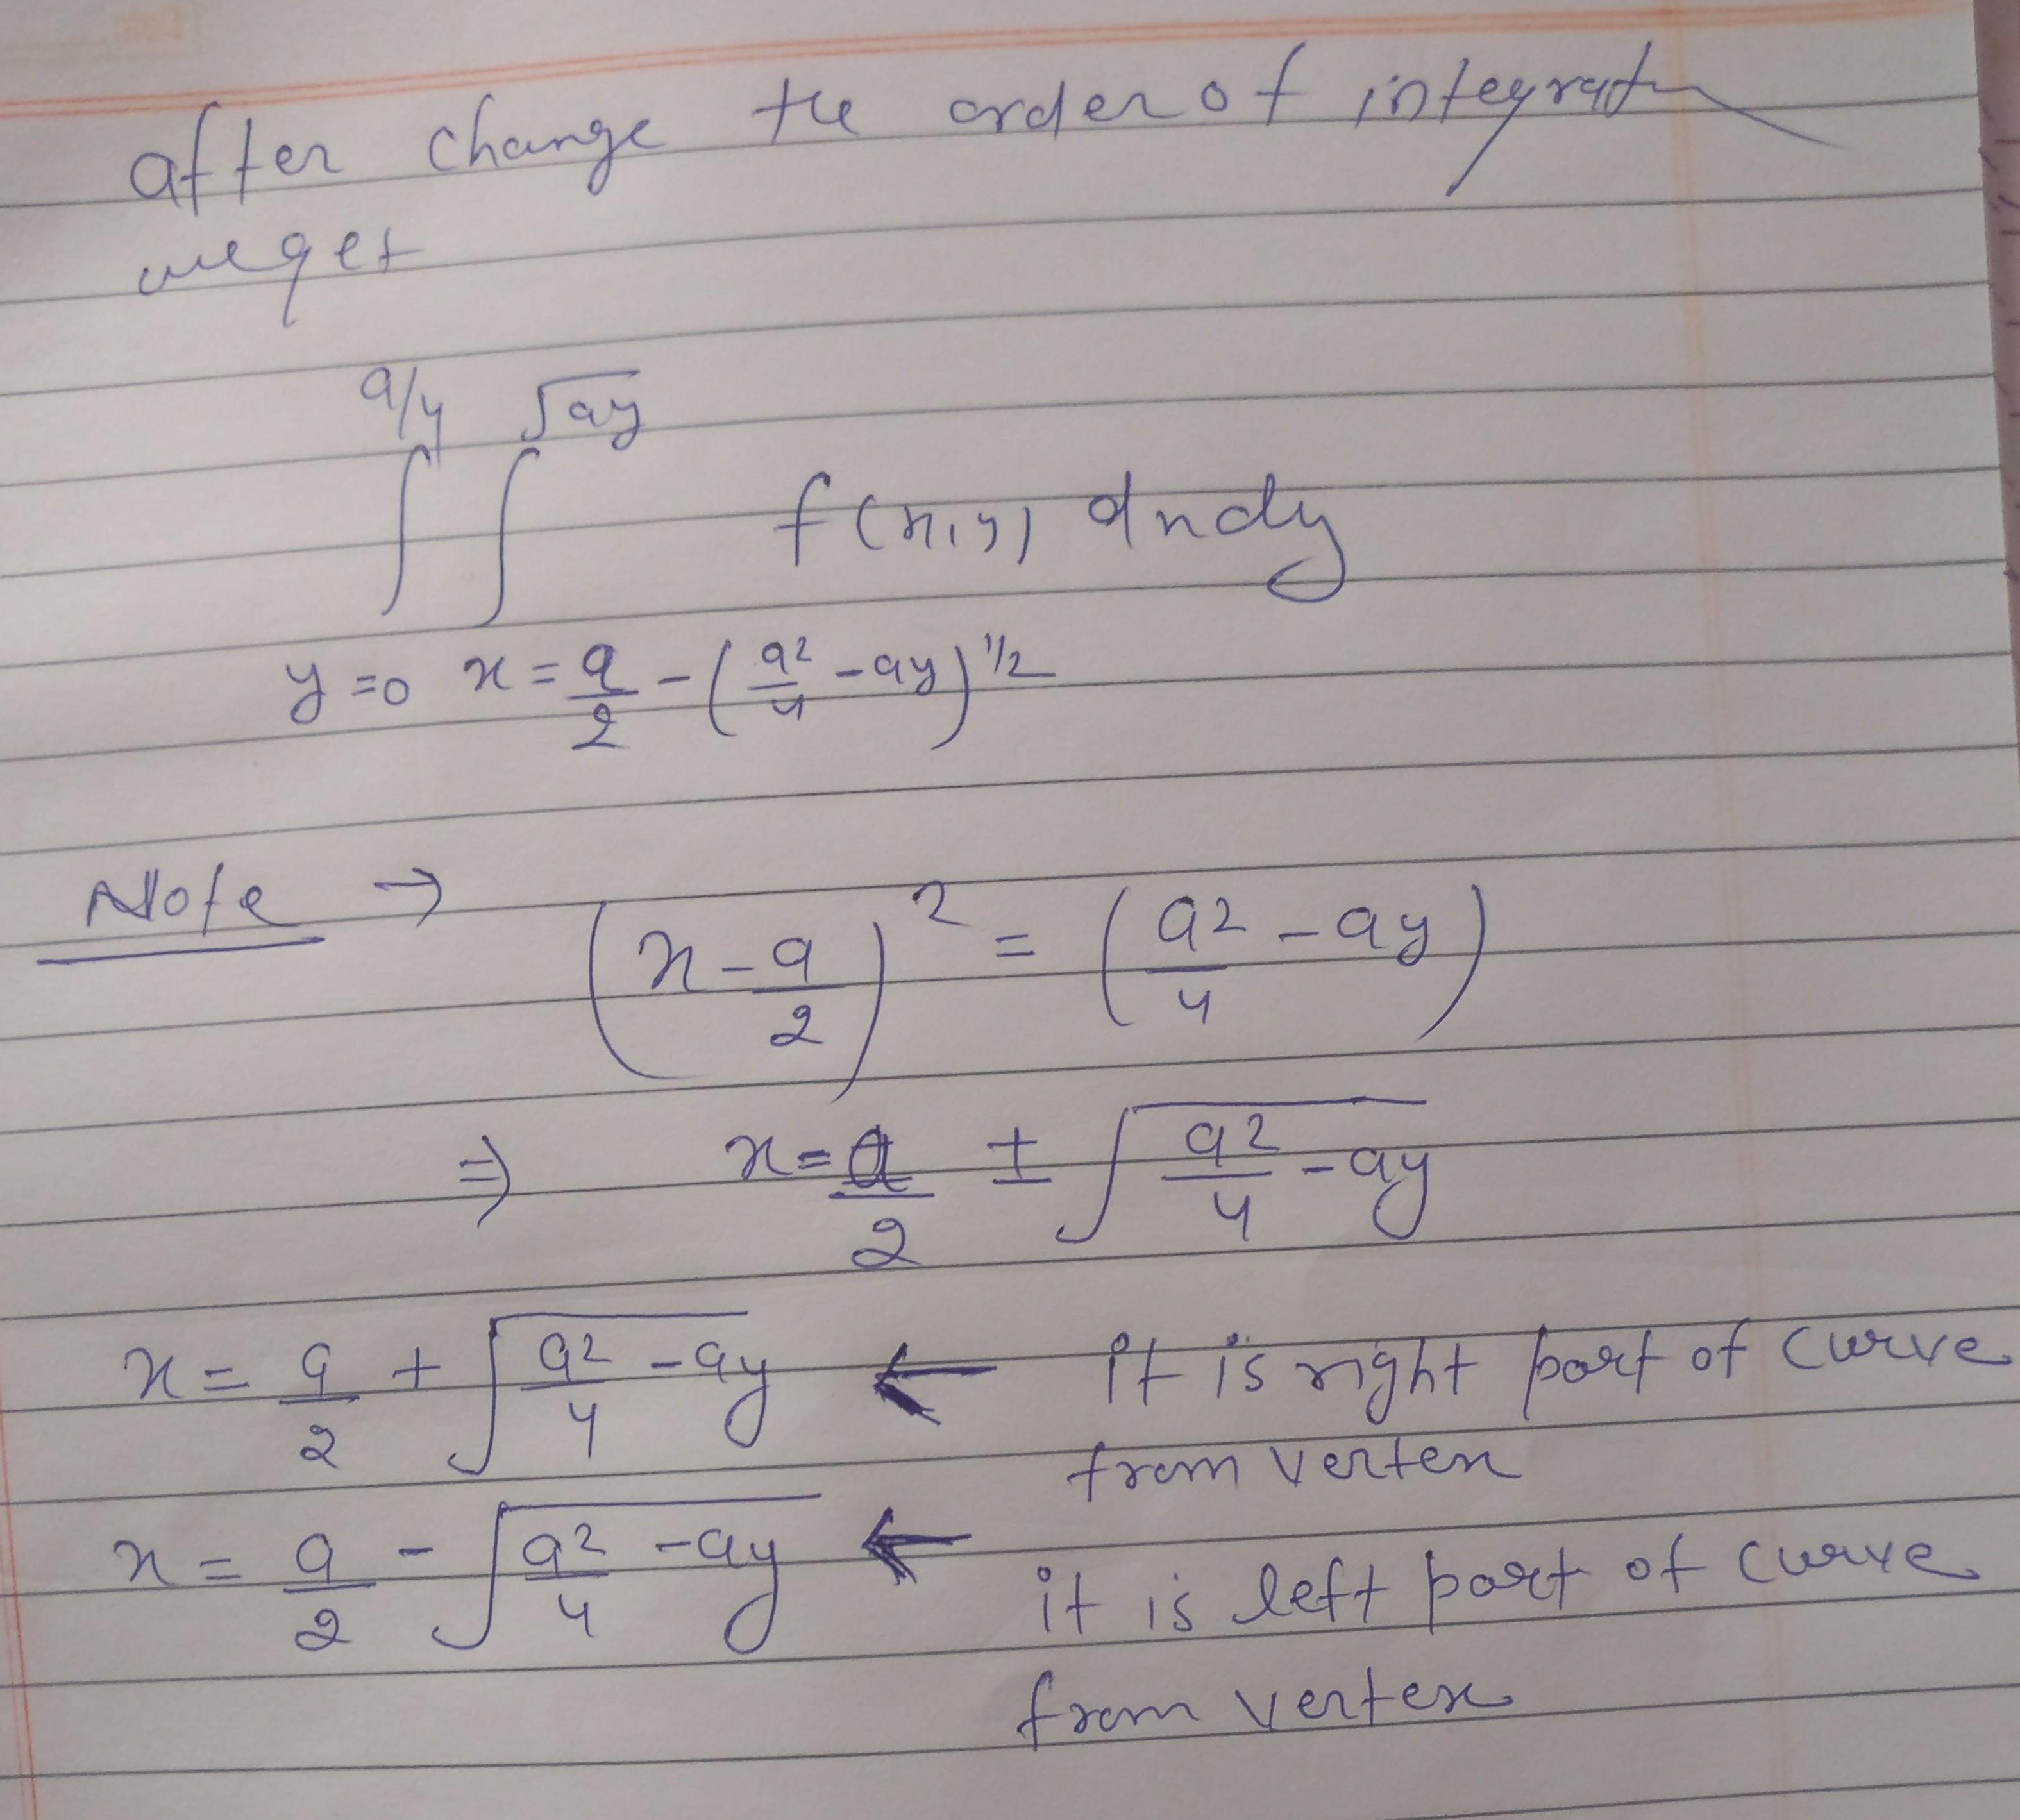 after change the order of integration
we get
a/4 √ay
∫ ∫ f(x,y) dxdy
y=0 x=a/2-(a²/4-ay)^1/2
Note → (x-a/2)² = (a²/4-ay)
⇒ x=a/2 ± √(a²/4-ay)
x=a/2+√(a²/4-ay) ← it is right part of curve
from vertex
x=a/2-√(a²/4-ay) ← it is left part of curve
from vertex